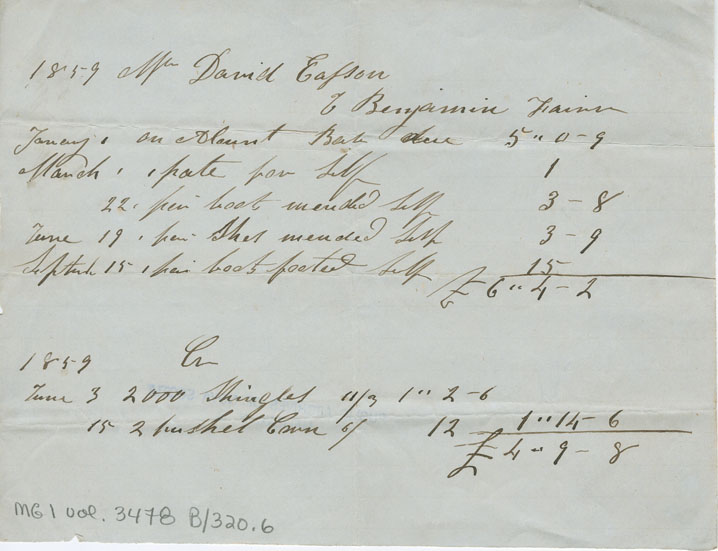 1859 Mr David Eason
T Benjamin
January 1 on Acount Bak due 5 " 0 - 9
March 1 1 pate for Self 1
22 1 pair boots mended Self 3 - 8
June 19 1 pair Shos mended Self 3 - 9
15 1 pair boots footed Self 15
£ 6 " 4 - 2
1859 Cr
June 3 2000 Shingles 11/3 1 " 2 - 6
15 2 bushel Corn 6/ 12 1 " 14 - 6
£ 4 " 9 - 8
MG 1 vol. 3478 B/320.6